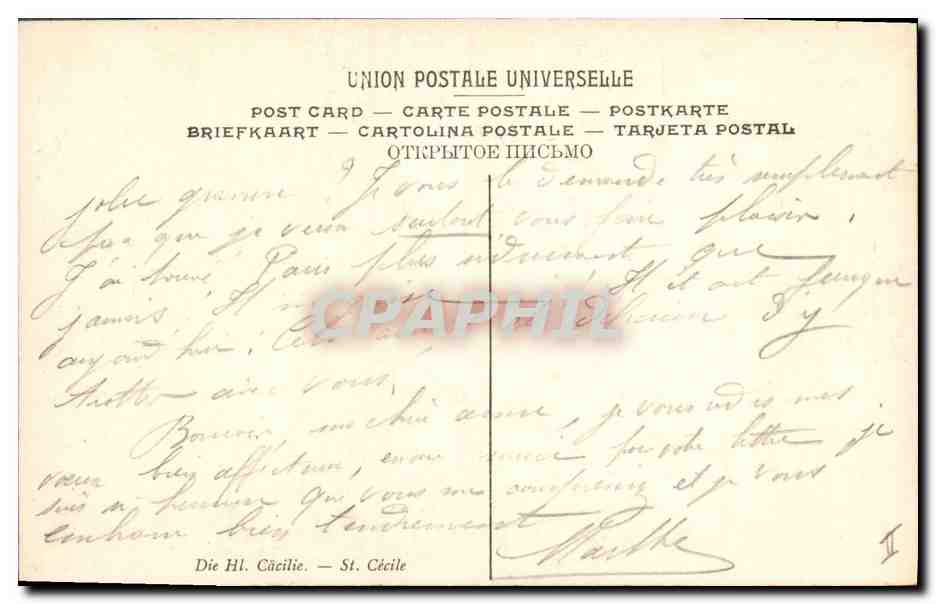 UNION POSTALE UNIVERSELLE
POST CARD — CARTE POSTALE — POSTKARTE
BRIEFKAART — CARTOLINA POSTALE — TARJETA POSTAL
ОТКРЫТОЕ ПИСЬМО
jolie ? Je vous le demande très simplement
que je veux surtout vous faire plaisir.
J'ai trouvé Paris plus que
jamais. Il Il était
aujourd'hui. d'y
trotter avec vous.
Bonsoir, ma chère amie, je vous redis mes
vœux bien affectueux, encore merci pour votre lettre je
suis si heureuse que vous me et je vous
embrasse bien tendrement
Marthe
Die Hl. Cäcilie. — St. Cécile
II
CPAPHIL